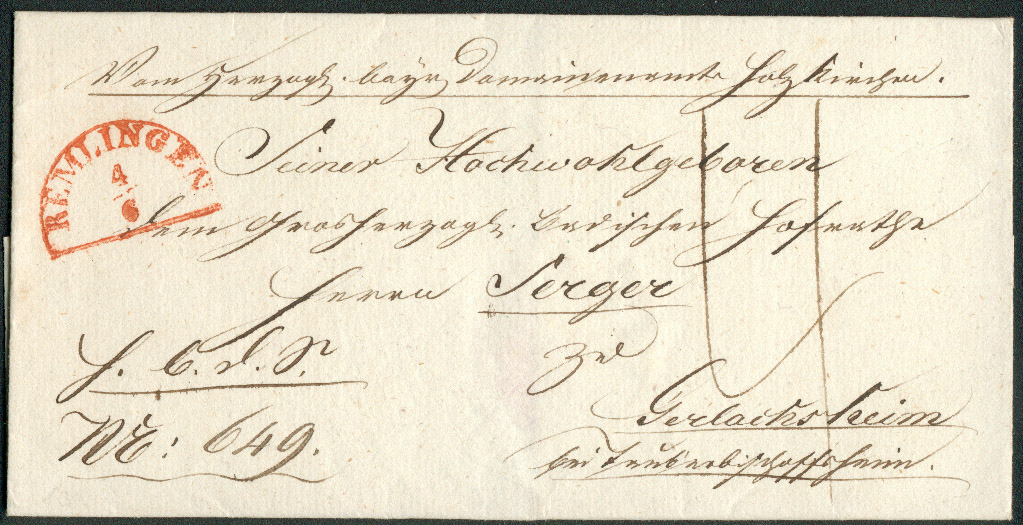 Vom Herzogl. bayr. Domainenamte Holzkirchen.
REMLINGEN
4
6
Seiner Hochwohlgeboren
dem Grosherzogl. Badischen Hofrathe
Herrn Serger
zu
H. C. d. S.
Gerlachsheim
Nr: 649.
bei Tauberbischoffsheim.